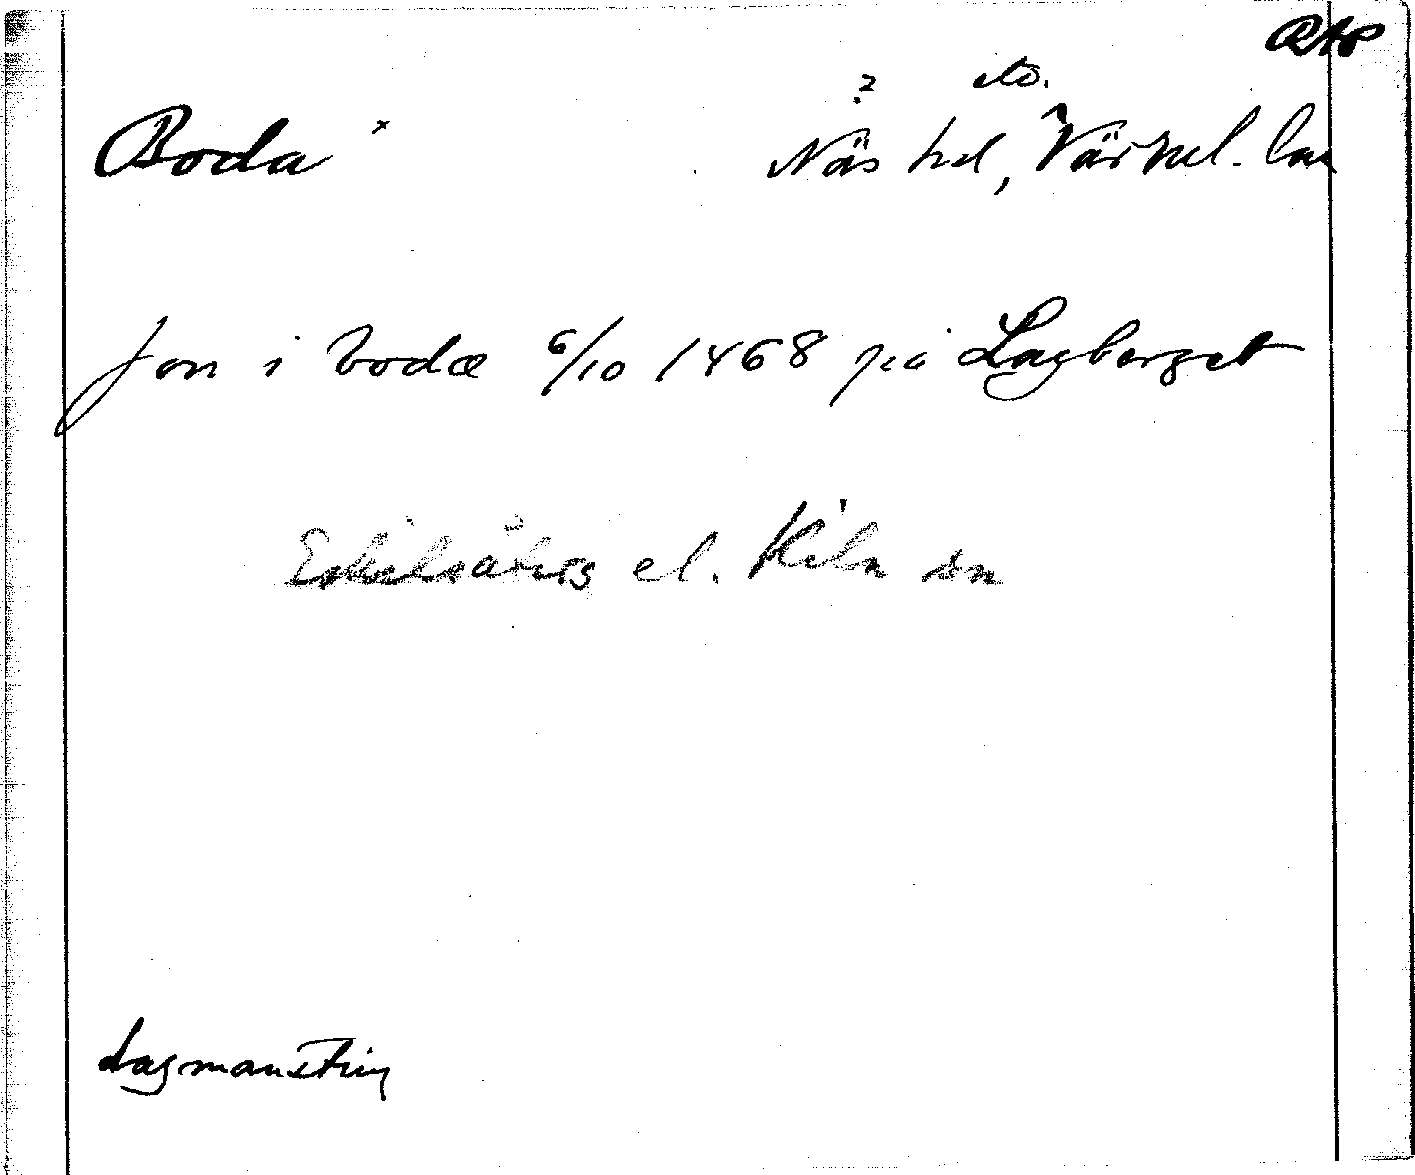 RAP
? etc.
Boda x Näs hd, Värml. län
Jon i bodæ 6/10 1468 på Lagberget
Eskilsäters el. Kila sn
Lagmansting